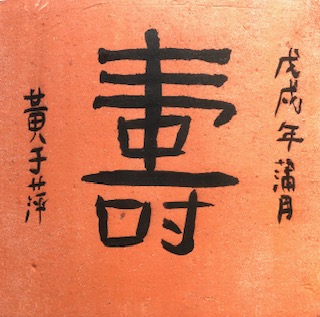 戊戌年蒲月
壽
黃于萍